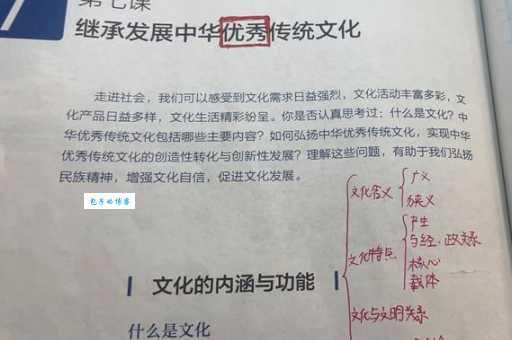 7
第七课
继承发展中华优秀传统文化
走进社会，我们可以感受到文化需求日益强烈，文化活动丰富多彩，文
化产品日益多样，文化生活精彩纷呈。你是否认真思考过：什么是文化？中
华优秀传统文化包括哪些主要内容？如何弘扬中华优秀传统文化，实现中华
优秀传统文化的创造性转化与创新性发展？理解这些问题，有助于我们弘扬
民族精神，增强文化自信，促进文化发展。
包子的博客
文化的内涵与功能
什么是文化
文化含义
广义
狭义
文化特点
产生
与经、政关系
核心
载体
文化与文明关系